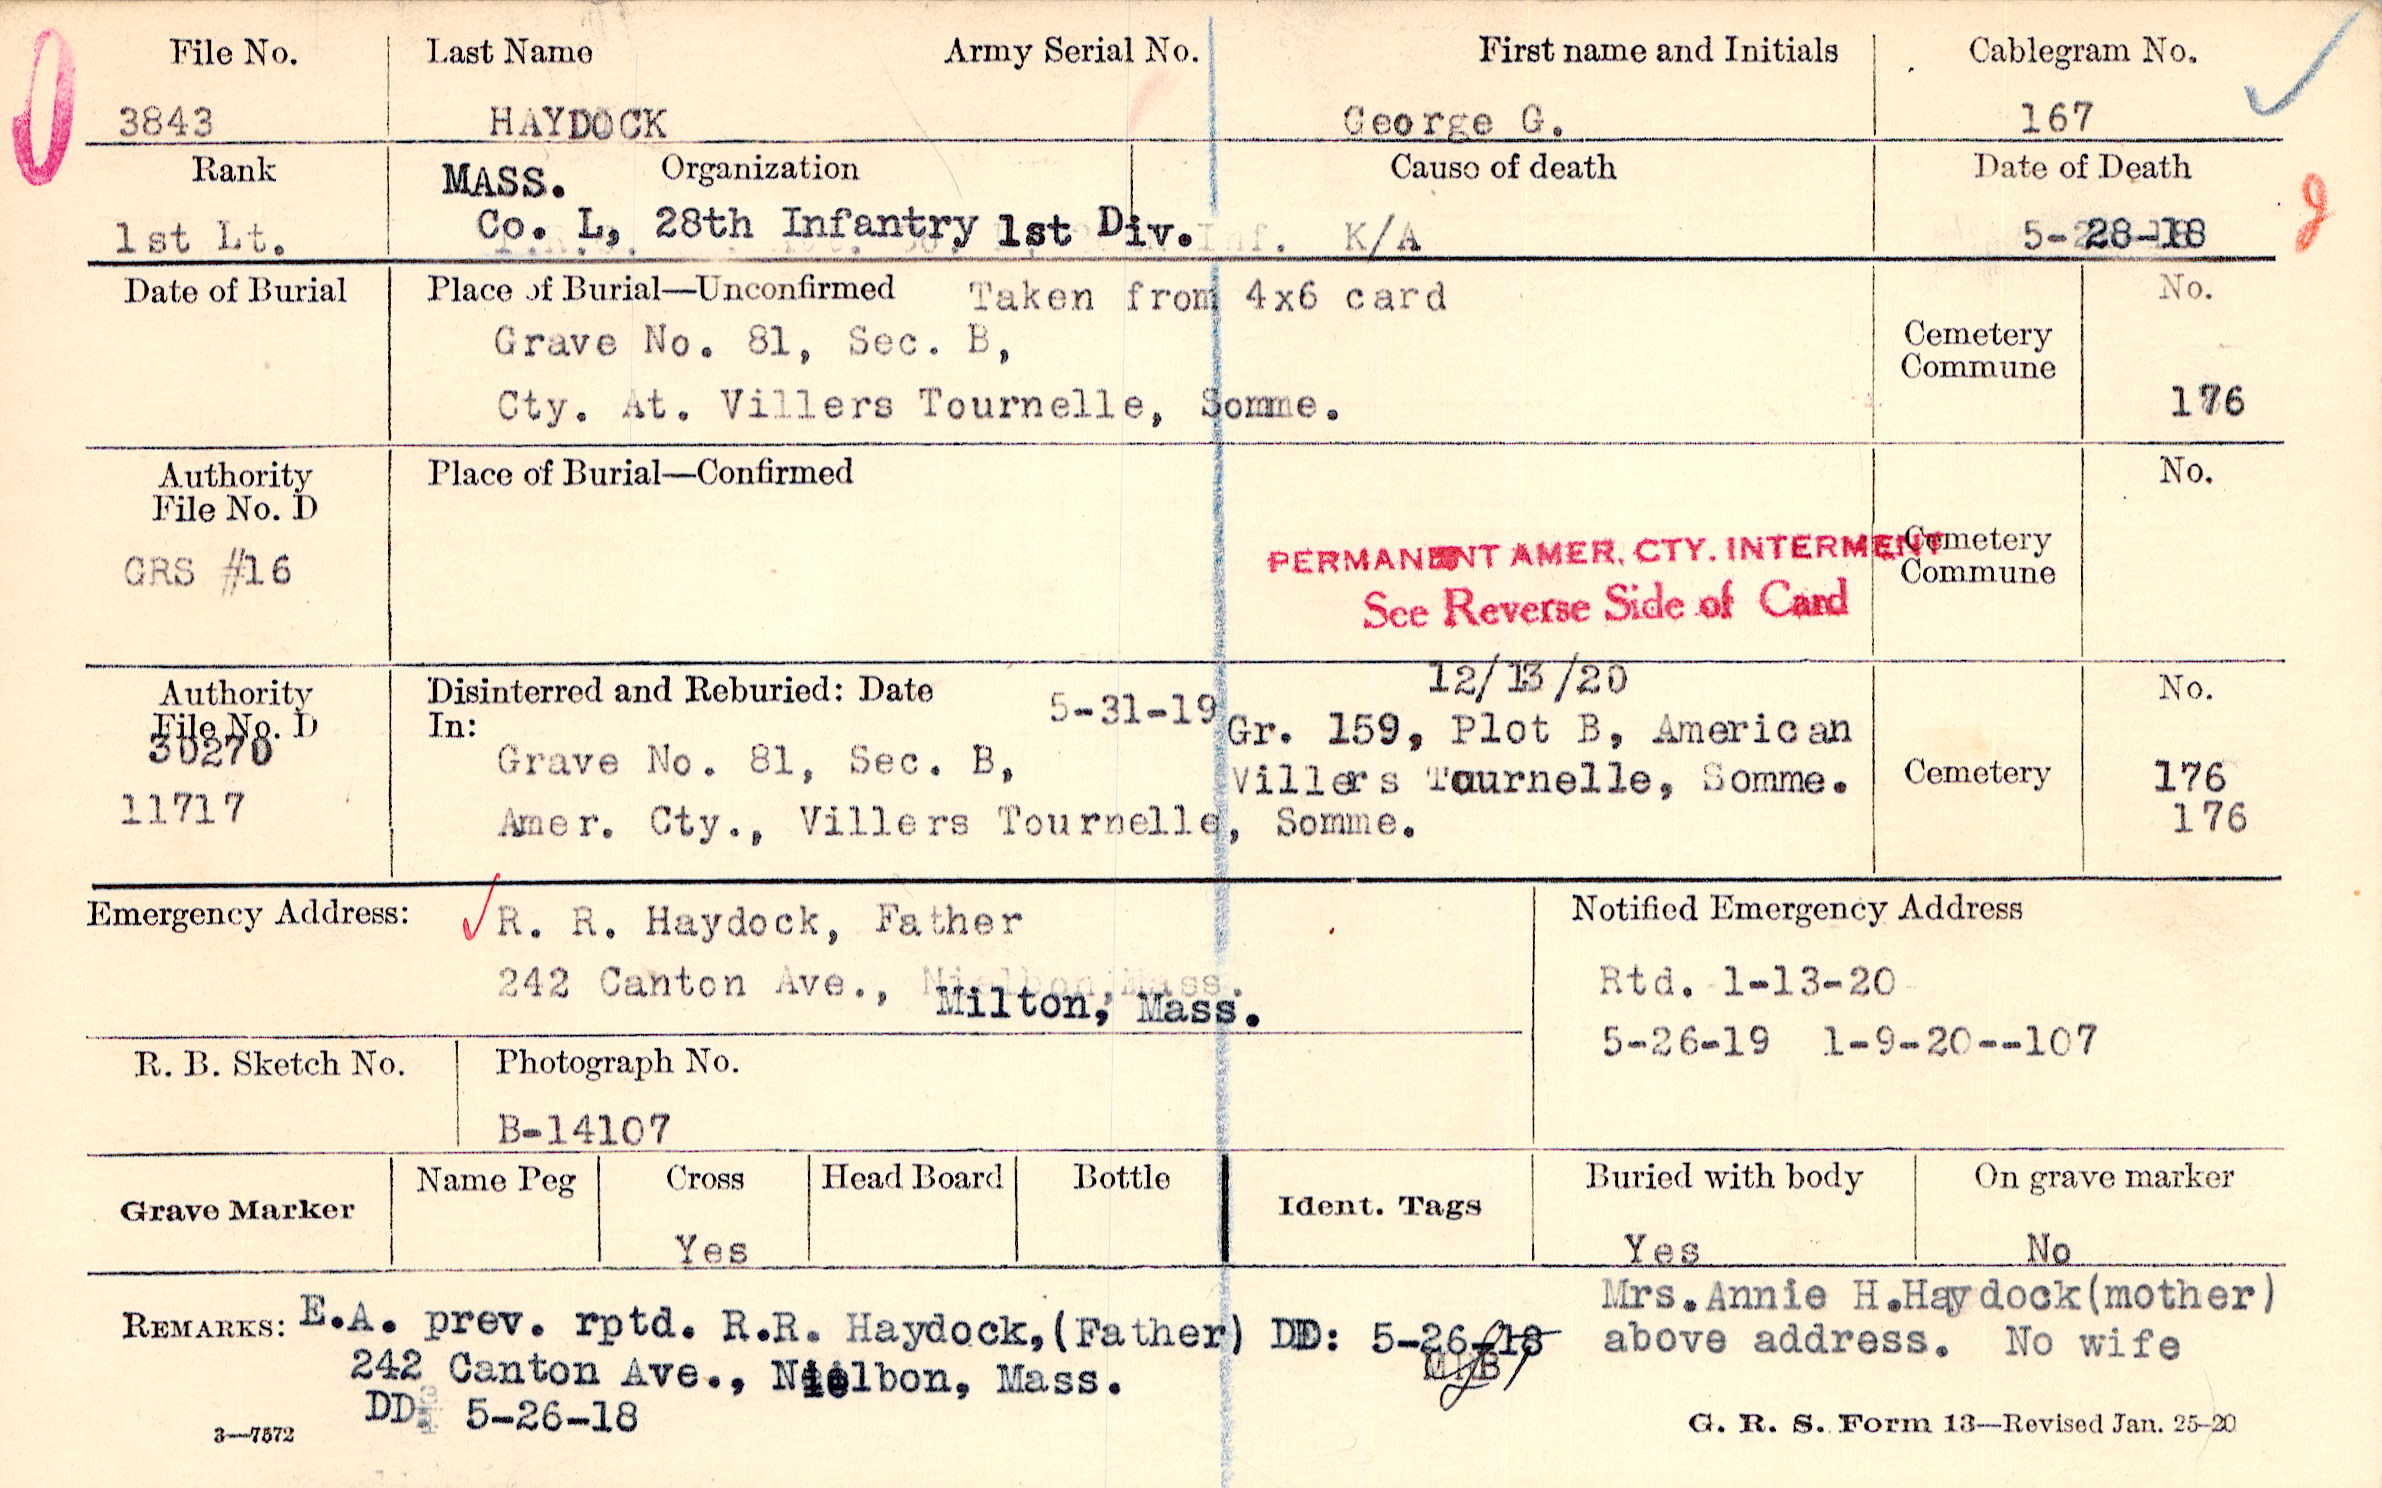 File No. Last Name Army Serial No. First name and Initials Cablegram No.
3843 HAYDOCK George G. 167
Rank MASS. Organization Cause of death Date of Death
1st Lt. Co. L, 28th Infantry 1st Div. Inf. K/A 5-28-18
Date of Burial Place of Burial—Unconfirmed Taken from 4x6 card No.
Grave No. 81, Sec. B, Cemetery
Commune
Cty. At. Villers Tournelle, Somme. 176
Authority Place of Burial—Confirmed No.
File No. D
PERMANENT AMER. CTY. INTERMENT Cemetery
GRS #16 Commune
See Reverse Side of Card
12/13/20
Authority Disinterred and Reburied: Date 5-31-19 No.
File No. D In: Gr. 159, Plot B, American
30270 Grave No. 81, Sec. B, Villers Tournelle, Somme. Cemetery 176
11717 Amer. Cty., Villers Tournelle, Somme. 176
Emergency Address: R. R. Haydock, Father Notified Emergency Address
242 Canton Ave., Nielbon, Mass. Rtd. 1-13-20
Milton, Mass.
5-26-19 1-9-20--107
R. B. Sketch No. Photograph No.
B-14107
Grave Marker Name Peg Cross Head Board Bottle Ident. Tags Buried with body On grave marker
Yes Yes No
REMARKS: E.A. prev. rptd. R.R. Haydock,(Father) DD: 5-26-18 Mrs.Annie H.Haydock(mother)
242 Canton Ave., Nielbon, Mass. above address. No wife
DD: 5-26-18
3—7572 G. R. S. Form 13—Revised Jan. 25-20